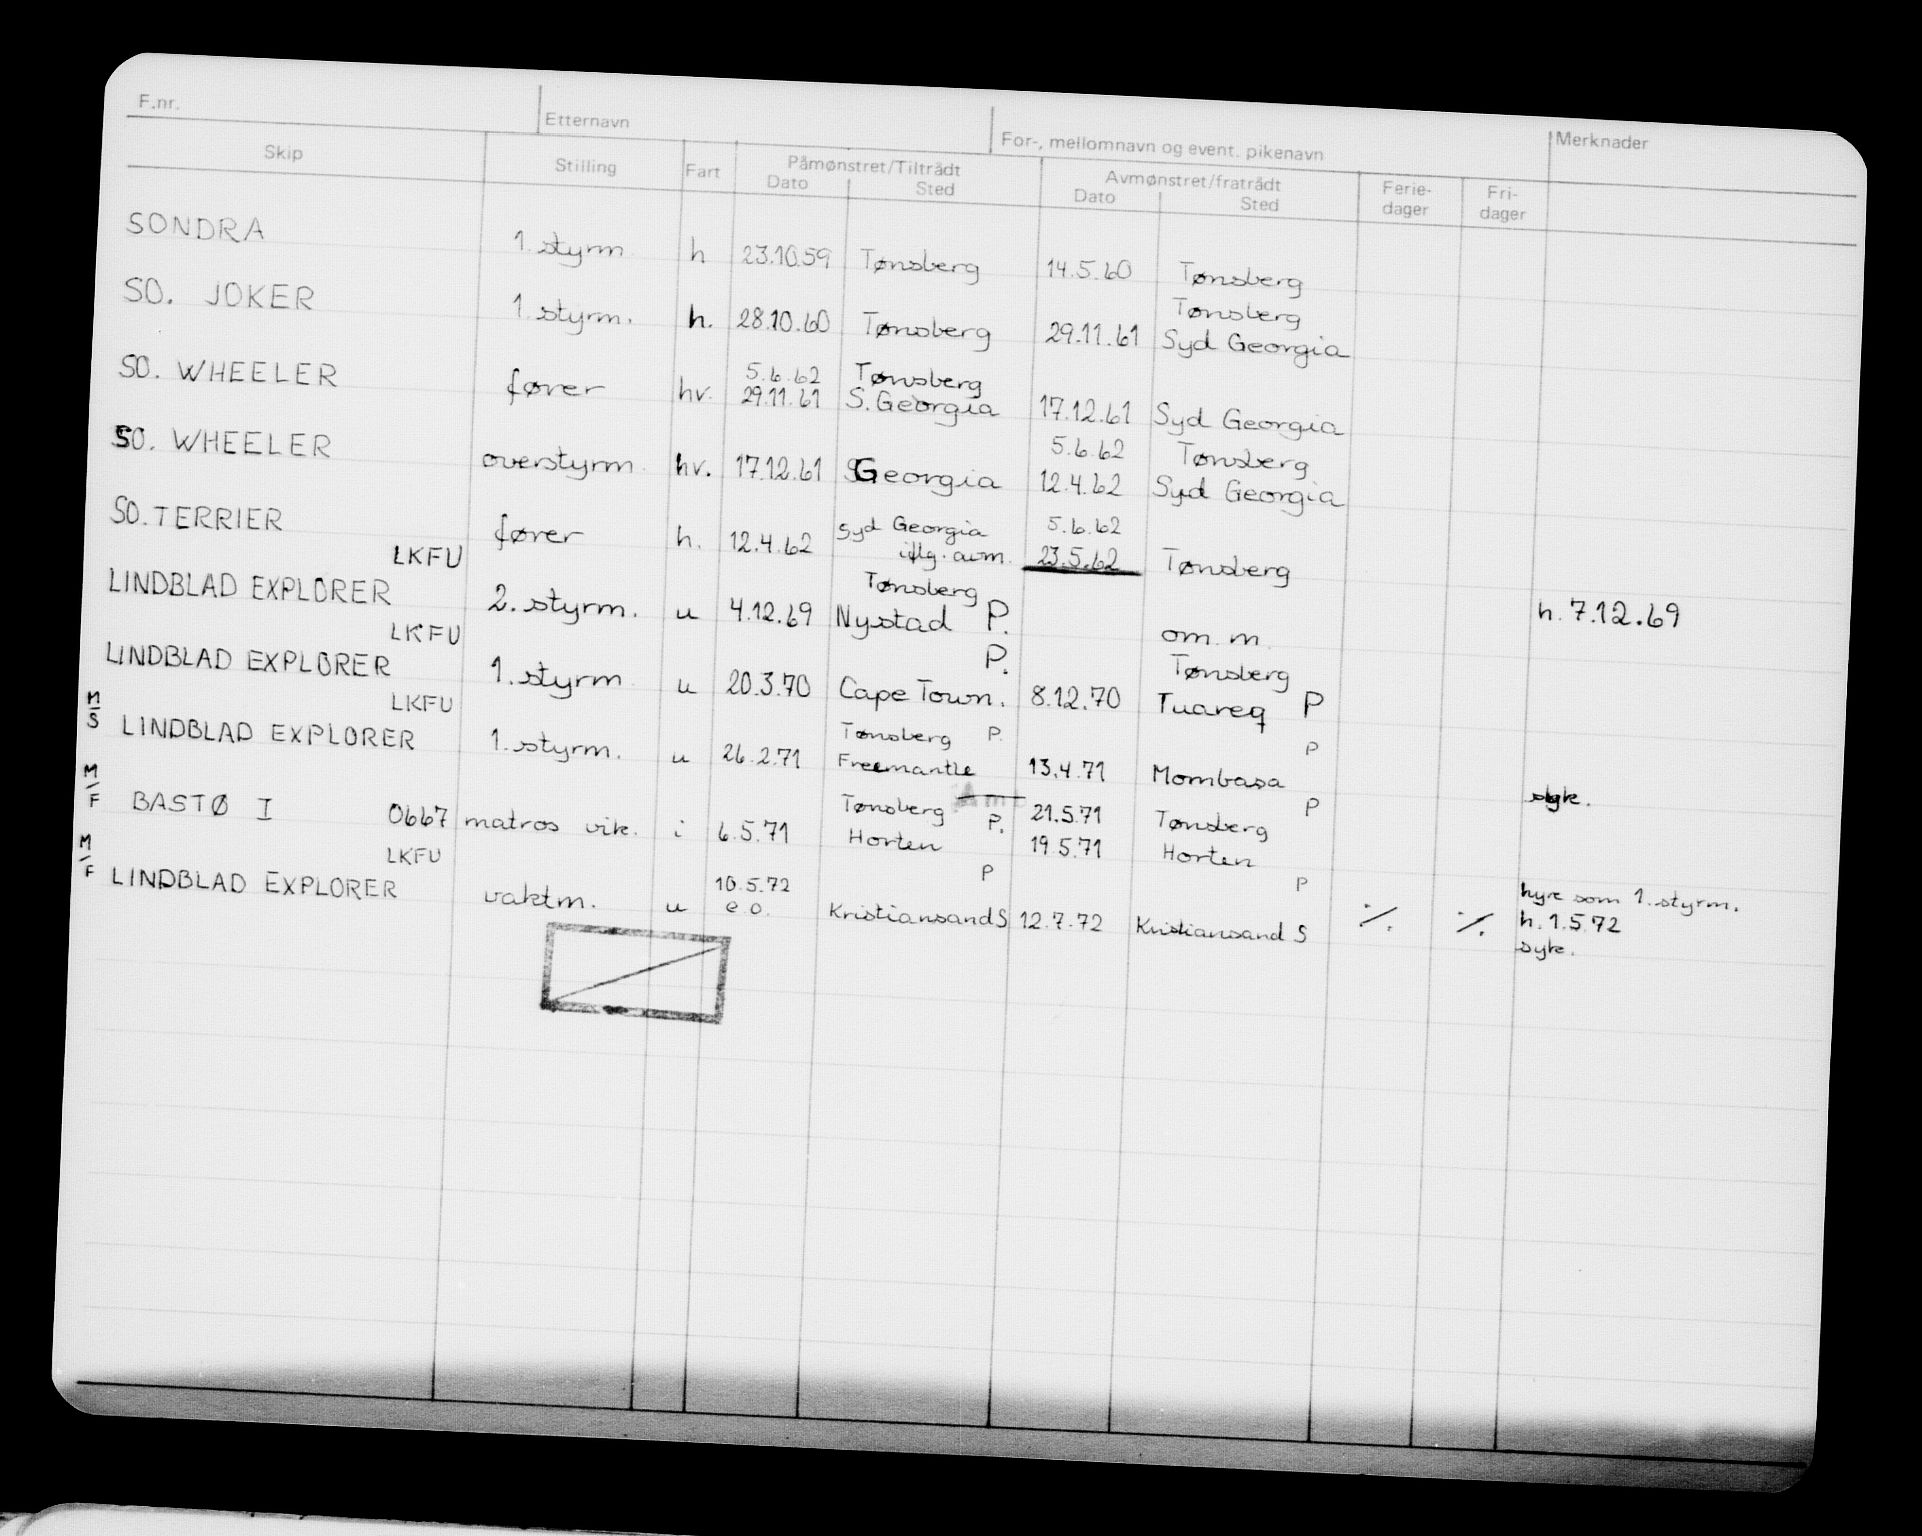 F.nr. Etternavn For-, mellomnavn og event. pikenavn Merknader
Skip Stilling Fart Påmønstret/Tiltrådt Avmønstret/fratrådt Ferie- Fri-
Dato Sted Dato Sted dager dager
SONDRA 1. styrm. h 23.10.59 Tønsberg 14.5.60 Tønsberg
Tønsberg
SO. JOKER 1. styrm. h. 28.10.60 Tønsberg 29.11.61 Syd Georgia
5.6.62 Tønsberg
SO. WHEELER fører hv. 29.11.61 S. Georgia 17.12.61 Syd Georgia
5.6.62 Tønsberg
SO. WHEELER overstyrm. hv. 17.12.61 S Georgia 12.4.62 Syd Georgia
Syd Georgia 5.6.62
SO. TERRIER fører h. 12.4.62 iflg. avm. 23.5.62 Tønsberg
LKFU Tønsberg
LINDBLAD EXPLORER 2. styrm. u 4.12.69 Nystad P. om. m. h. 7.12.69
LKFU P. Tønsberg
LINDBLAD EXPLORER 1. styrm u 20.3.70 Cape Town. 8.12.70 Tuareq P
LKFU Tønsberg P. P
M/S LINDBLAD EXPLORER 1. styrm. u 26.2.71 Freemantle 13.4.71 Mombasa syk.
Tønsberg P. 21.5.71 Tønsberg P
M/F BASTØ I 0667 matros vik. i 6.5.71 Horten 19.5.71 Horten
LKFU 10.5.72 P P hyre som 1. styrm.
M/F LINDBLAD EXPLORER vaktm. u e.o. Kristiansand S 12.7.72 Kristiansand S ./. ./. h. 1.5.72
syk.